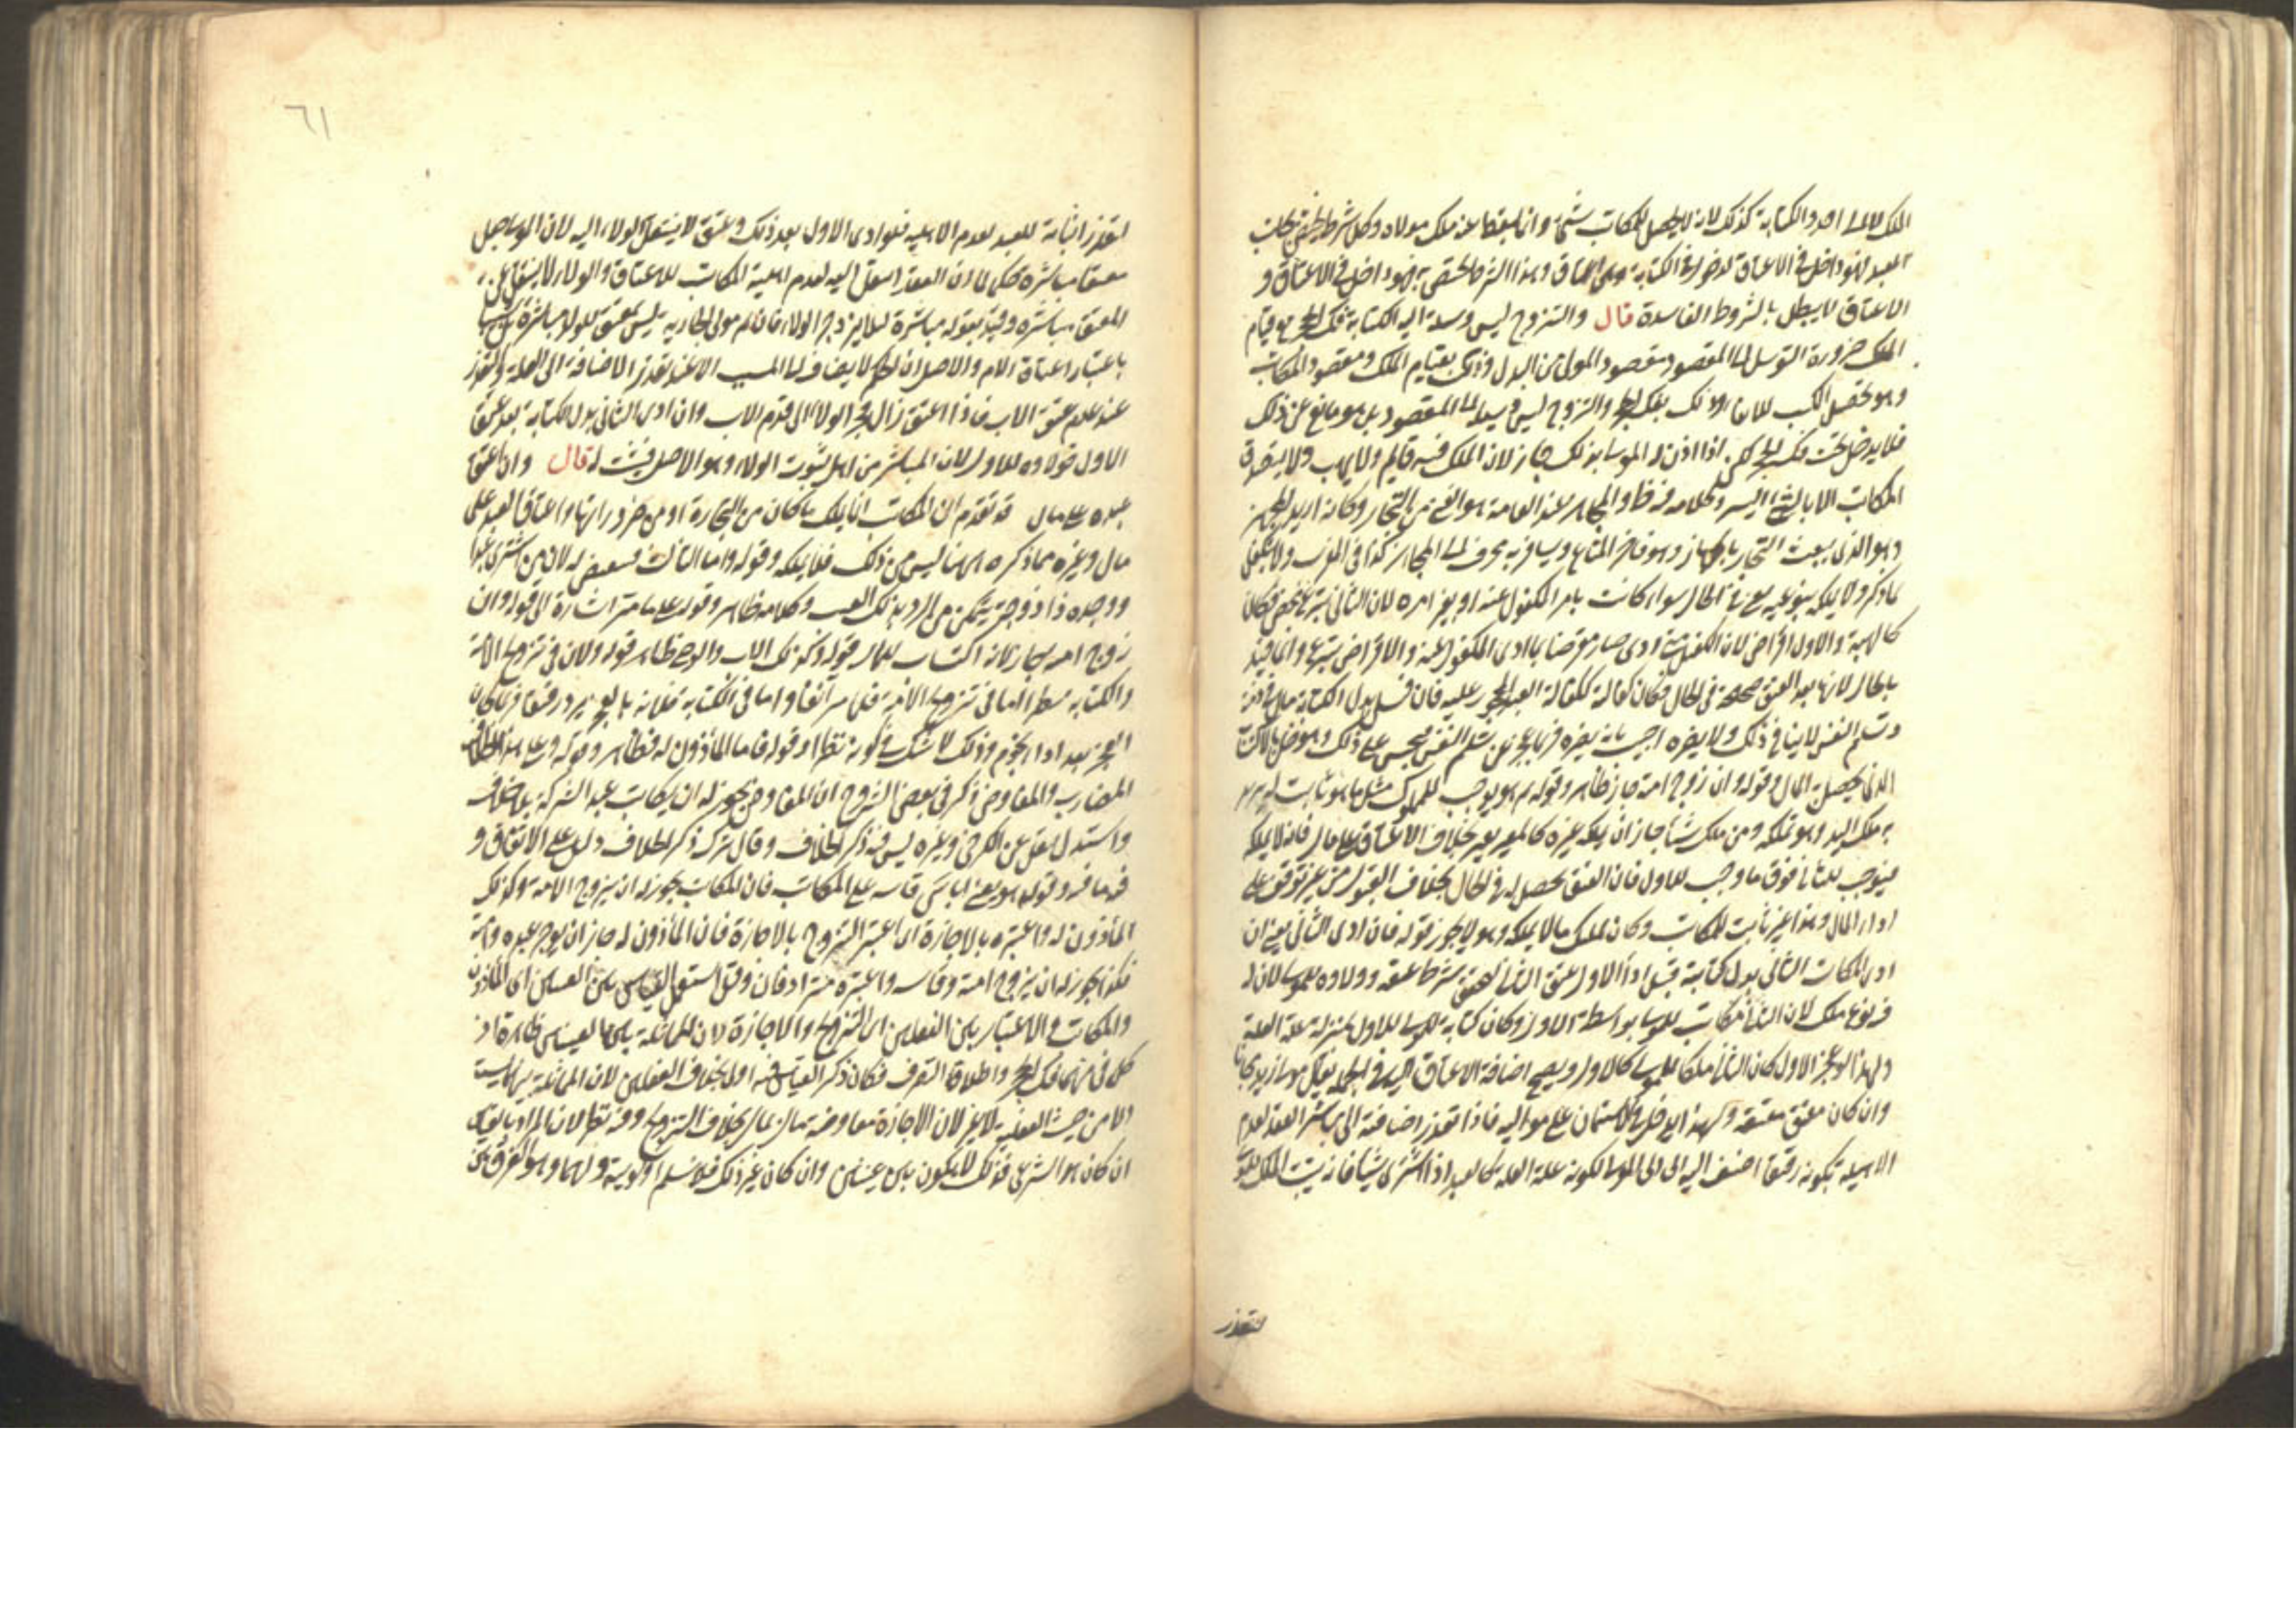 الملك لا الى احد والكتابة كذلك لانه لا يحصل للمكاتب شئ وانما يسقط عنه ملك مولاه وكل شرط يختص بجانب
العبد فهو داخل في الاعتاق وهذا الشرط يختص به فهو داخل في الاعتاق و
الاعتاق لا يبطل بالشروط الفاسدة قال والتزوج ليس وسيلة اليه الكتابة فك الحجر مع قيام
الملك ضرورة التوسل الى المقصود مقصود المولى من البدل وذلك بقيام الملك ومقصود المكاتب
وهو تحصيل الكسب للايفاء وذلك بفك الحجر والتزوج ليس وسيلة الى المقصود بل هو مانع عن ذلك
فلا يدخل تحت فك الحجر اذا اذن له المولى بذلك جاز لان الملك فيه قائم ولا يهب ولا يتصدق
المكاتب الا بالشئ اليسير وكلامه فيه ظاهر والمجاهز عند العامة هو الغني من التجار وكانه اريد المجهز
وهو الذي يبعث التجار بالجهاز وهو فاخر المتاع ويسافر به فحرف الى المجاهز كذا في المغرب ولا يتكفل
لما ذكر ولا يملكه بنوعيه يعني في الحال سواء كانت بامر المكفول عنه او بغير امره لان الثاني تبرع محض فكان
كالهبة والاول اقراض لان الكفيل متى ادى صار مقرضا بما ادى المكفول عنه والاقراض تبرع وانما قيد
بالحال لانها بعد العتق صحيحة في الحال فكان كفالته ككفالة العبد المحجور عليه فان قيل بدل الكتابة مال في ذمته
وتسلم النفس لا ينافي ذلك ولا يضره اجيب بانه يضره فربما يعجز عن تسلم النفس فيحبس على ذلك وهو مخل بالاكتساب
الذي يحصل به المال وقوله وان زوج امته جاز ظاهر وقوله ثم هو يوجب للمملوك مثل ما هو ثابت له
ملك اليد وهو تملكه ومن ملك شيئا جاز ان يملكه غيره كالمعير يعير بخلاف الاعتاق على مال فانه لا يملكه
فيوجب للثاني فوق ما وجب للاول فان العتق يحصل له في الحال بخلاف القبول من غير توقف على
اداء المال وهذا غير ثابت للمكاتب وكان تمليك ما لا يملكه وهو لا يجوز قوله فان ادى الثاني يعني ان
ادى المكاتب الثاني بدل كتابته قبل اداء الاول عتق الثاني لتحقق شرط عتقه وولاؤه للمولى لان له
فيه نوع ملك لان الثاني مكاتب للمولى بواسطة الاول وكان كتابة المولى للاول بمنزلة علة العلة
ولهذا لو عجز الاول كان الثاني ملكا للمولى كالاول ويصح اضافة الاعتاق اليه في الجملة يقال مولى زيد مجازا
وان كان معتق معتقه ولهذا يدخل في الاستئمان على مواليه فاذا تعذر اضافته الى مباشر العقد لعدم
الاهلية بكونه رقيقا اضيف اليه اي الى المولى لكونه علة العلة كالعبد اذا اشترى شيئا فانه يثبت الملك للمولى
لتعذر
٦١
لتعذر اثباته للعبد لعدم الاهلية فلو ادى الاول بعد ذلك وعتق لا ينتقل الولاء اليه لان المولى جعل
معتقا مباشرة حكما لان العقد انتقل اليه لعدم اهلية المكاتب للاعتاق والولاء لا ينتقل عن
المعتق مباشرة وقيد بقوله مباشرة لئلا يرد جر الولاء فان ثم مولى الجارية ليس بمعتق للولد مباشرة بل تسبيبا
باعتبار اعتاق الام والاصل ان الحكم لا يضاف الى السبب الا عند تعذر الاضافة الى العلة والتعذر
عند عدم عتق الاب فاذا اعتق زال فجر الولاء الى قوم الاب وان ادى الثاني بدل الكتابة بعد عتق
الاول فولاؤه للاول لان المباشر من اهل ثبوت الولاء وهو الاصل فيثبت له قال وان اعتق
عبده على مال قد تقدم ان المكاتب انما يملك ما كان من التجارة او من ضروراتها واعتاق العبد على
مال وغيره مما ذكره ههنا ليس من ذلك فلا يملكه وقوله واما الثالث فتنقيص له لان من اشترى عبدا
ووجده ذا زوجة يتمكن من الرد بذلك العيب وكلامه ظاهر وقوله على ما مر اشارة الى قوله وان
زوج امته جاز لانه اكتساب للمال قوله وكذلك الاب والوصي ظاهر قوله ولان في تزويج الامة
والكتابة نظرا اما في تزويج الامة فلما مر آنفا واما في الكتابة فلانه بالعجز يرد رقيقا فربما كان
العجز بعد اداء نجوم وذلك لا شك في كونه نظرا وقوله فاما المأذون له فظاهر وقوله وعلى هذا الخلاف
المضارب والمفاوض ذكر في بعض الشروح ان المفاوض يجوز له ان يكاتب عبد الشركة بلا خلاف
واستدل بنقل عن الكرخي وغيره ليس فيه ذكر الخلاف وقال ترك ذكر الخلاف دليل على الاتفاق و
فيه ما فيه وقوله هو يعني ابا يوسف قاسه على المكاتب فان المكاتب يجوز له ان يزوج الامة وكذلك
المأذون له واعتبره بالاجارة اي اعتبر التزويج بالاجارة فان المأذون له جاز ان يؤجر عبده وامته
فكذا يجوز له ان يزوج امته وقاسه واعتبره مترادفان وقيل استعمل القياس بين العينين اي المأذون
والمكاتب والاعتبار بين الفعلين اي التزويج والاجارة لان المماثلة بين العينين ظاهرة اذ
كل منهما فك الحجر واطلاق التصرف فكان ذكر القياس فيه اولى بخلاف الفعلين لان المماثلة بينهما ليست
الا من حيث الفعلية لا غير لان الاجارة معاوضة مال بمال بخلاف التزويج وفيه نظر لان المراد بالقياس
ان كان هو الشرعي فذلك لا يكون بين عينين وان كان غير ذلك فلا نسلم اولويته ولهما وهو الفرق بين